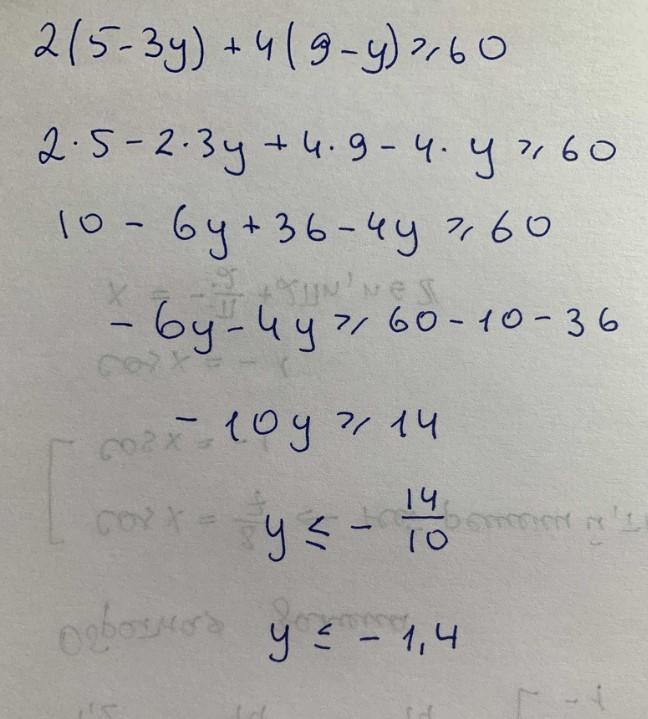 2(5-3y)+4(9-y)⩾60
2·5-2·3y+4·9-4·y⩾60
10-6y+36-4y⩾60
-6y-4y⩾60-10-36
-10y⩾14
y≤-14/10
y≤-1,4